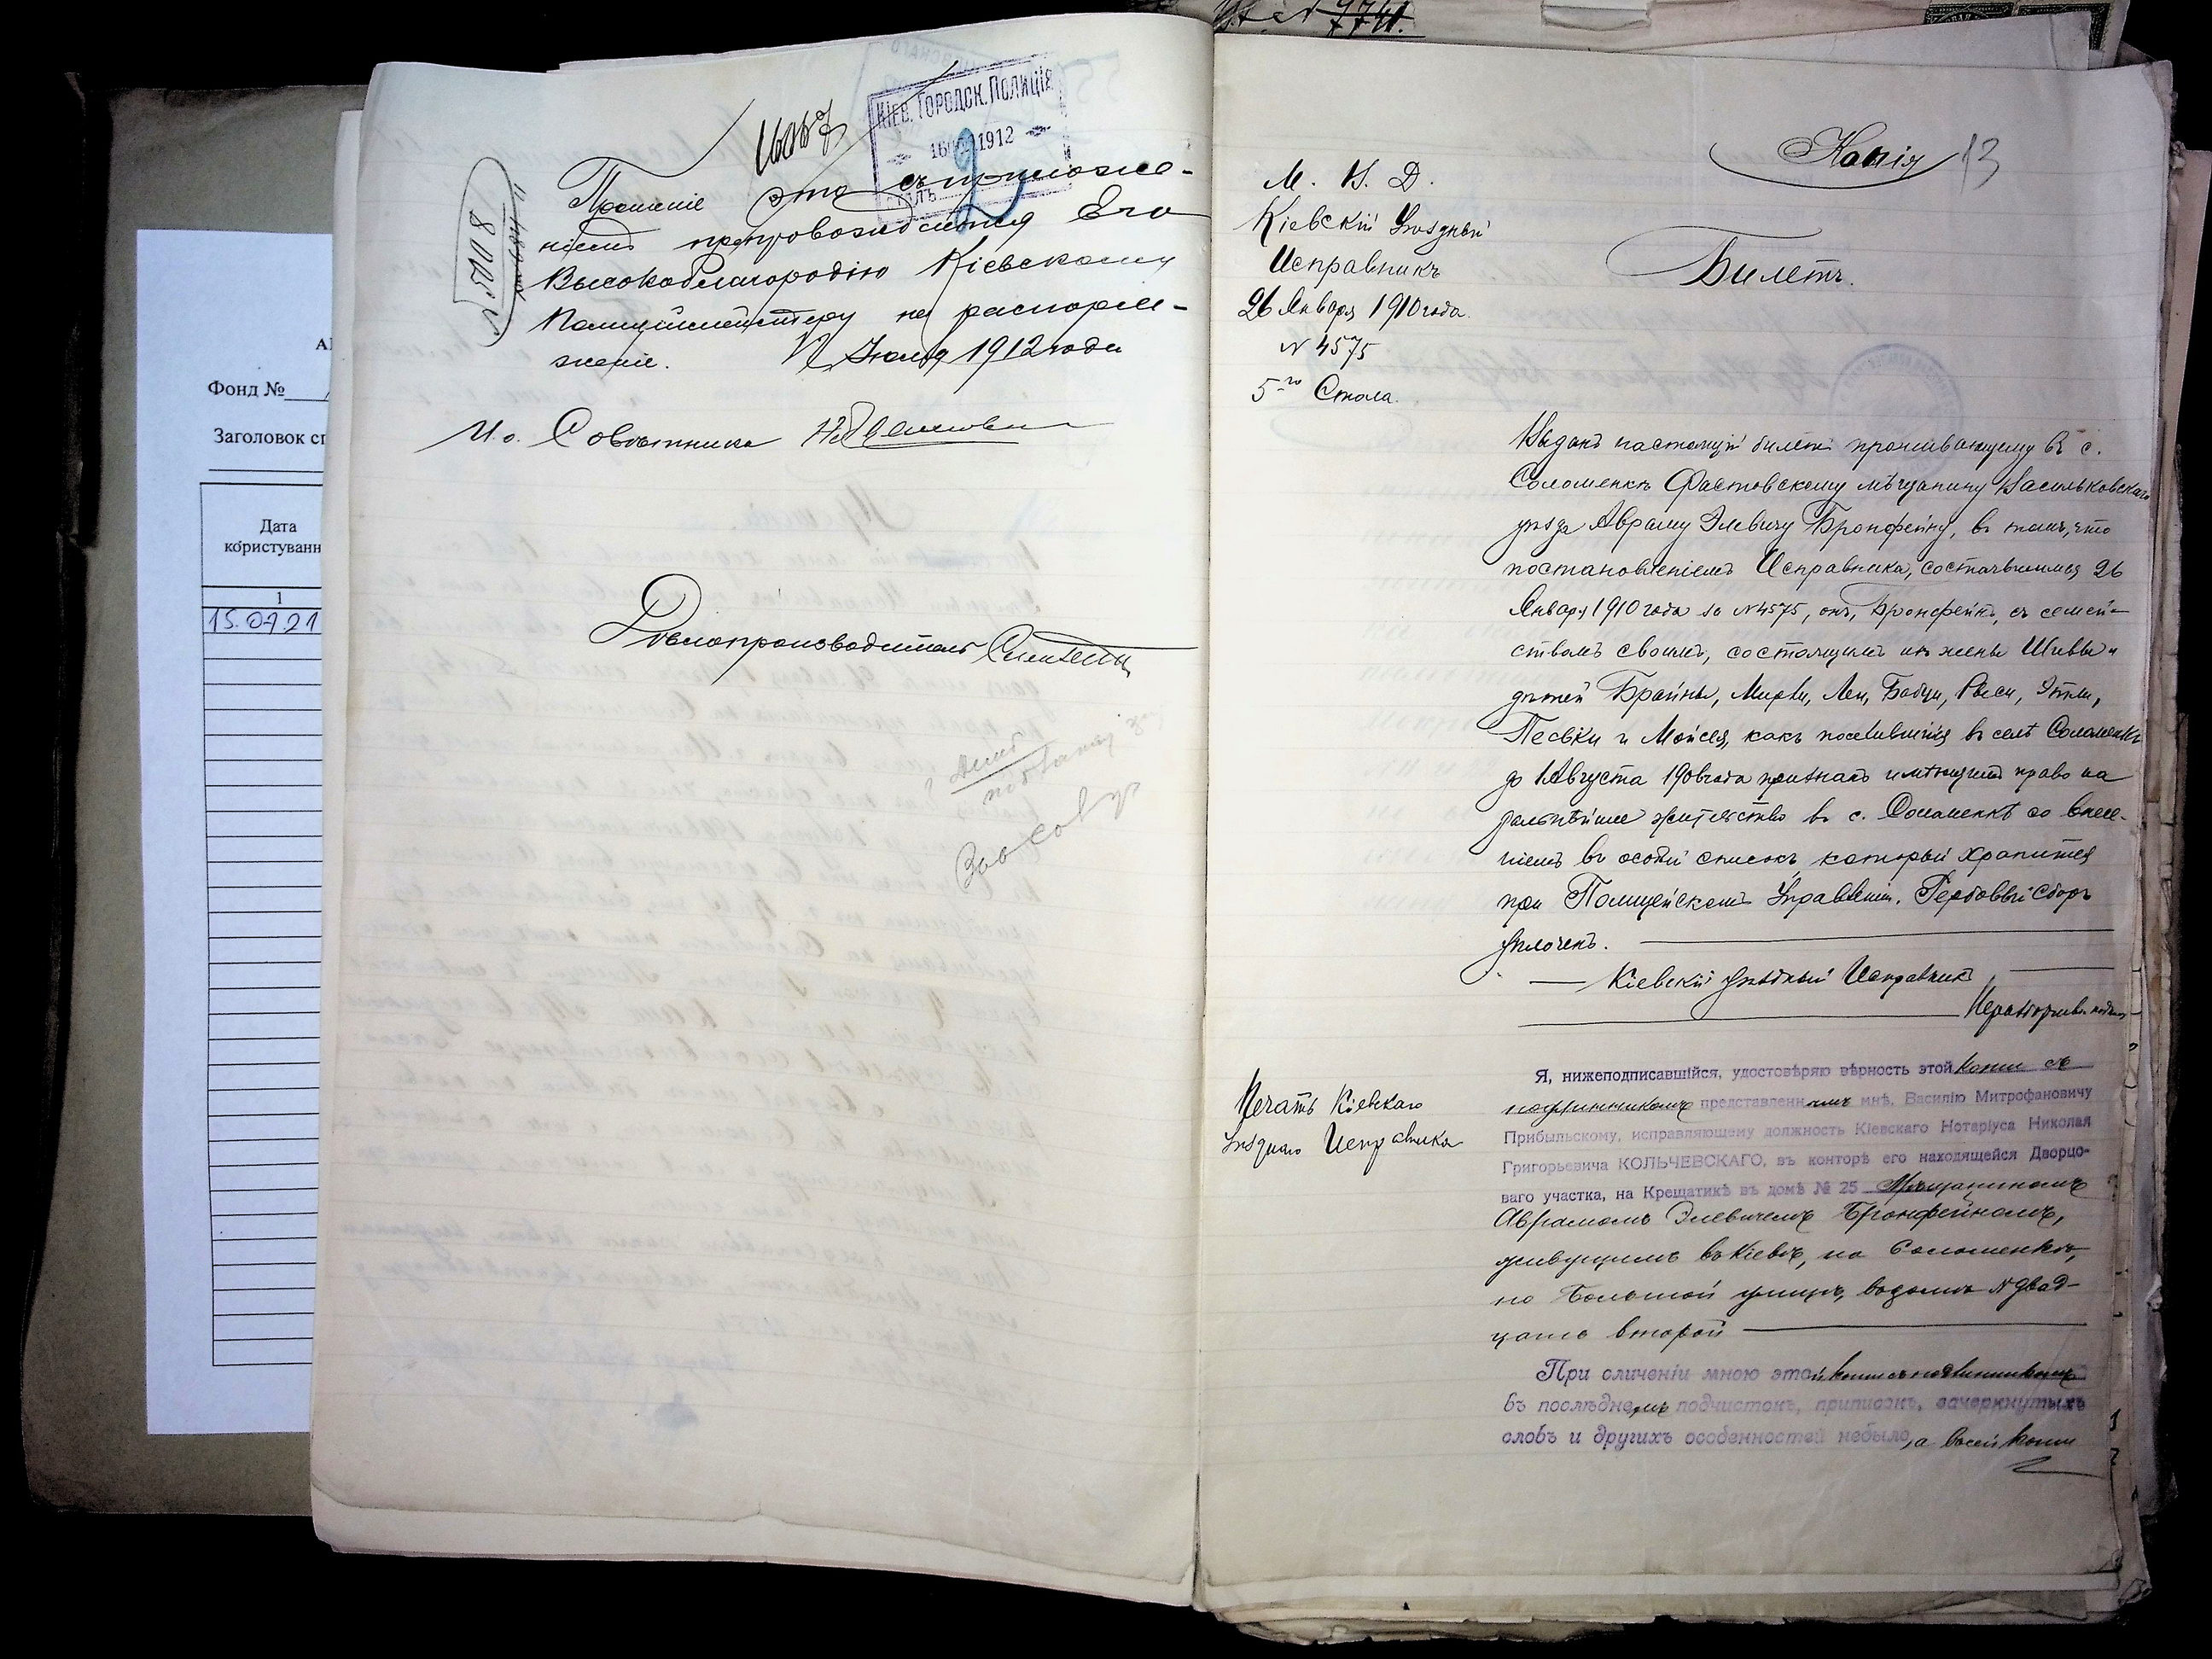 Фонд №
Заголовок
Дата
користуванн
1
15.07.21
КІЕВ. ГОРОДСК. ПОЛИЦІЯ
1912
2
№ 5008
Прошеніе это съ приложе-
ніемъ препровождается Его
Высокоблагородію Кіевскому
Полиціймейстеру на распоря-
женіе. Іюля 1912 года
И. о. Совѣтника
Дѣлопроизводитель
Копія
13
М. В. Д.
Кіевскій Уѣздный
Исправникъ
26 Января 1910 года.
№ 4575
5-го Стола.
Билетъ.
Выданъ настоящій билетъ проживающему въ с.
Соломенкѣ Фастовскому мѣщанину Васильковскаго
уѣзда Авраму Элевичу Бронфейну, въ томъ, что
постановленіемъ Исправника, состоявшимся 26
Января 1910 года за №4575, онъ, Бронфейнъ, съ семей-
ствомъ своимъ, состоящимъ изъ жены Шивы и
дѣтей Брайны, Мирки, Леи, Бабци, Рыси, Этли,
Песьки и Мойсея, какъ поселившійся въ селѣ Соломенкѣ
до 1 Августа 1906 года признанъ имѣющимъ право на
дальнѣйшее жительство въ с. Соломенкѣ со внесе-
ніемъ въ особый списокъ, который хранится
при Полицейскомъ Управленіи. Гербовый сборъ
уплоченъ.
Кіевскій уѣздный Исправникъ
Печать Кіевскаго
Уѣзднаго Исправника
Я, нижеподписавшійся, удостовѣряю вѣрность этой копіи съ
подлинникомъ представленнымъ мнѣ, Василію Митрофановичу
Прибыльскому, исправляющему должность Кіевскаго Нотаріуса Николая
Григорьевича КОЛЬЧЕВСКАГО, въ конторѣ его находящейся Дворцо-
ваго участка, на Крещатикѣ въ домѣ № 25 Мѣщаниномъ
Аврамомъ Элевичемъ Бронфейномъ,
живущимъ въ Кіевѣ, на Соломенкѣ,
по Большой улицѣ, въ домѣ № двад-
цать второй
При сличеніи мною этой копіи съ подлинникомъ
въ послѣднемъ подчистокъ, приписокъ, зачеркнутыхъ
словъ и другихъ особенностей небыло, а въ сей копіи